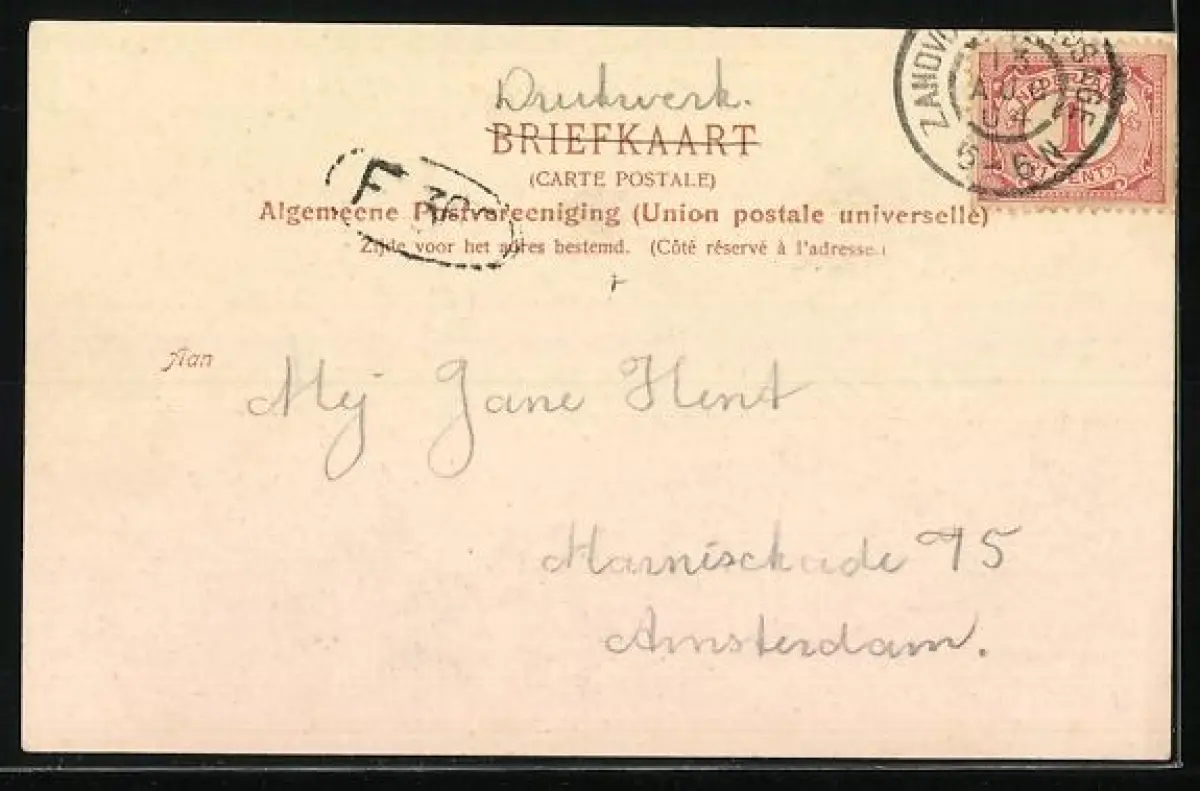 Drukwerk.
BRIEFKAART
(CARTE POSTALE)
Algemeene Postvereeniging (Union postale universelle)
Zijde voor het adres bestemd. (Côté réservé à l'adresse.)
F 30
5-6N
1 CENT
Aan
Mej Jane Hent
Marnisckade 75
Amsterdam.